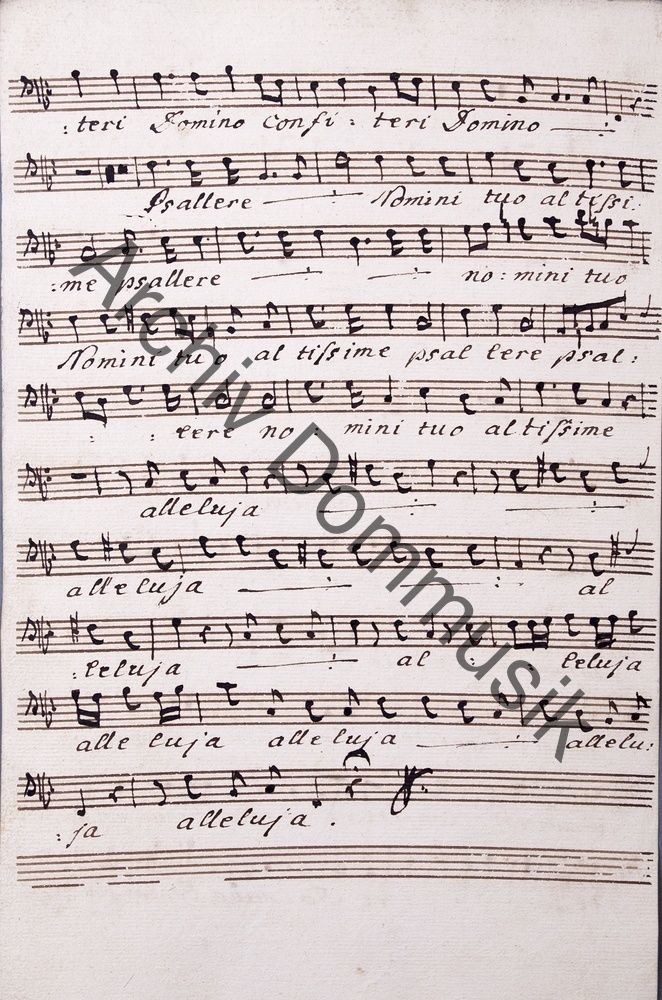 : teri Domino Confi : teri Domino —:—
Psallere —:— Nomini tuo al tissi:
: me psallere —:— —:— no : mini tuo
Nomini tu o al tissime psal lere psal :
: : lere no : mini tuo altissime
alleluja —:— —:—
alleluja —:— —:— al
: leluja —:— al : : leluja
alle luja alleluja —:— allelu:
: ja alleluja .
Archiv Dommusik